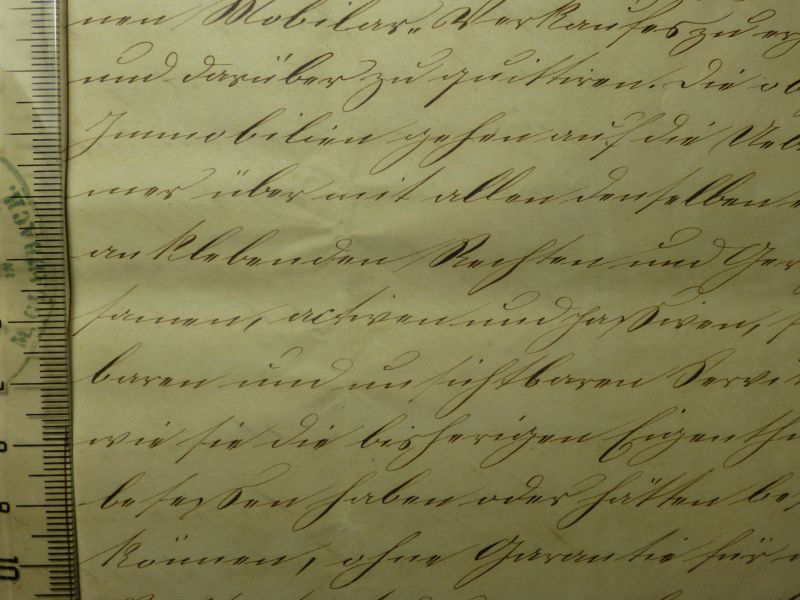 nen Mobilar-Verkaufes zu
und darüber zu quittiren. Die
Immobilien gehen auf die
mer über mit allen denselben
anklebenden Rechten und
samen, activen und passiven,
baren und unsichtbaren
wie sie die bisherigen
besessen haben oder hätten
können, ohne Garantie für
8
9
10